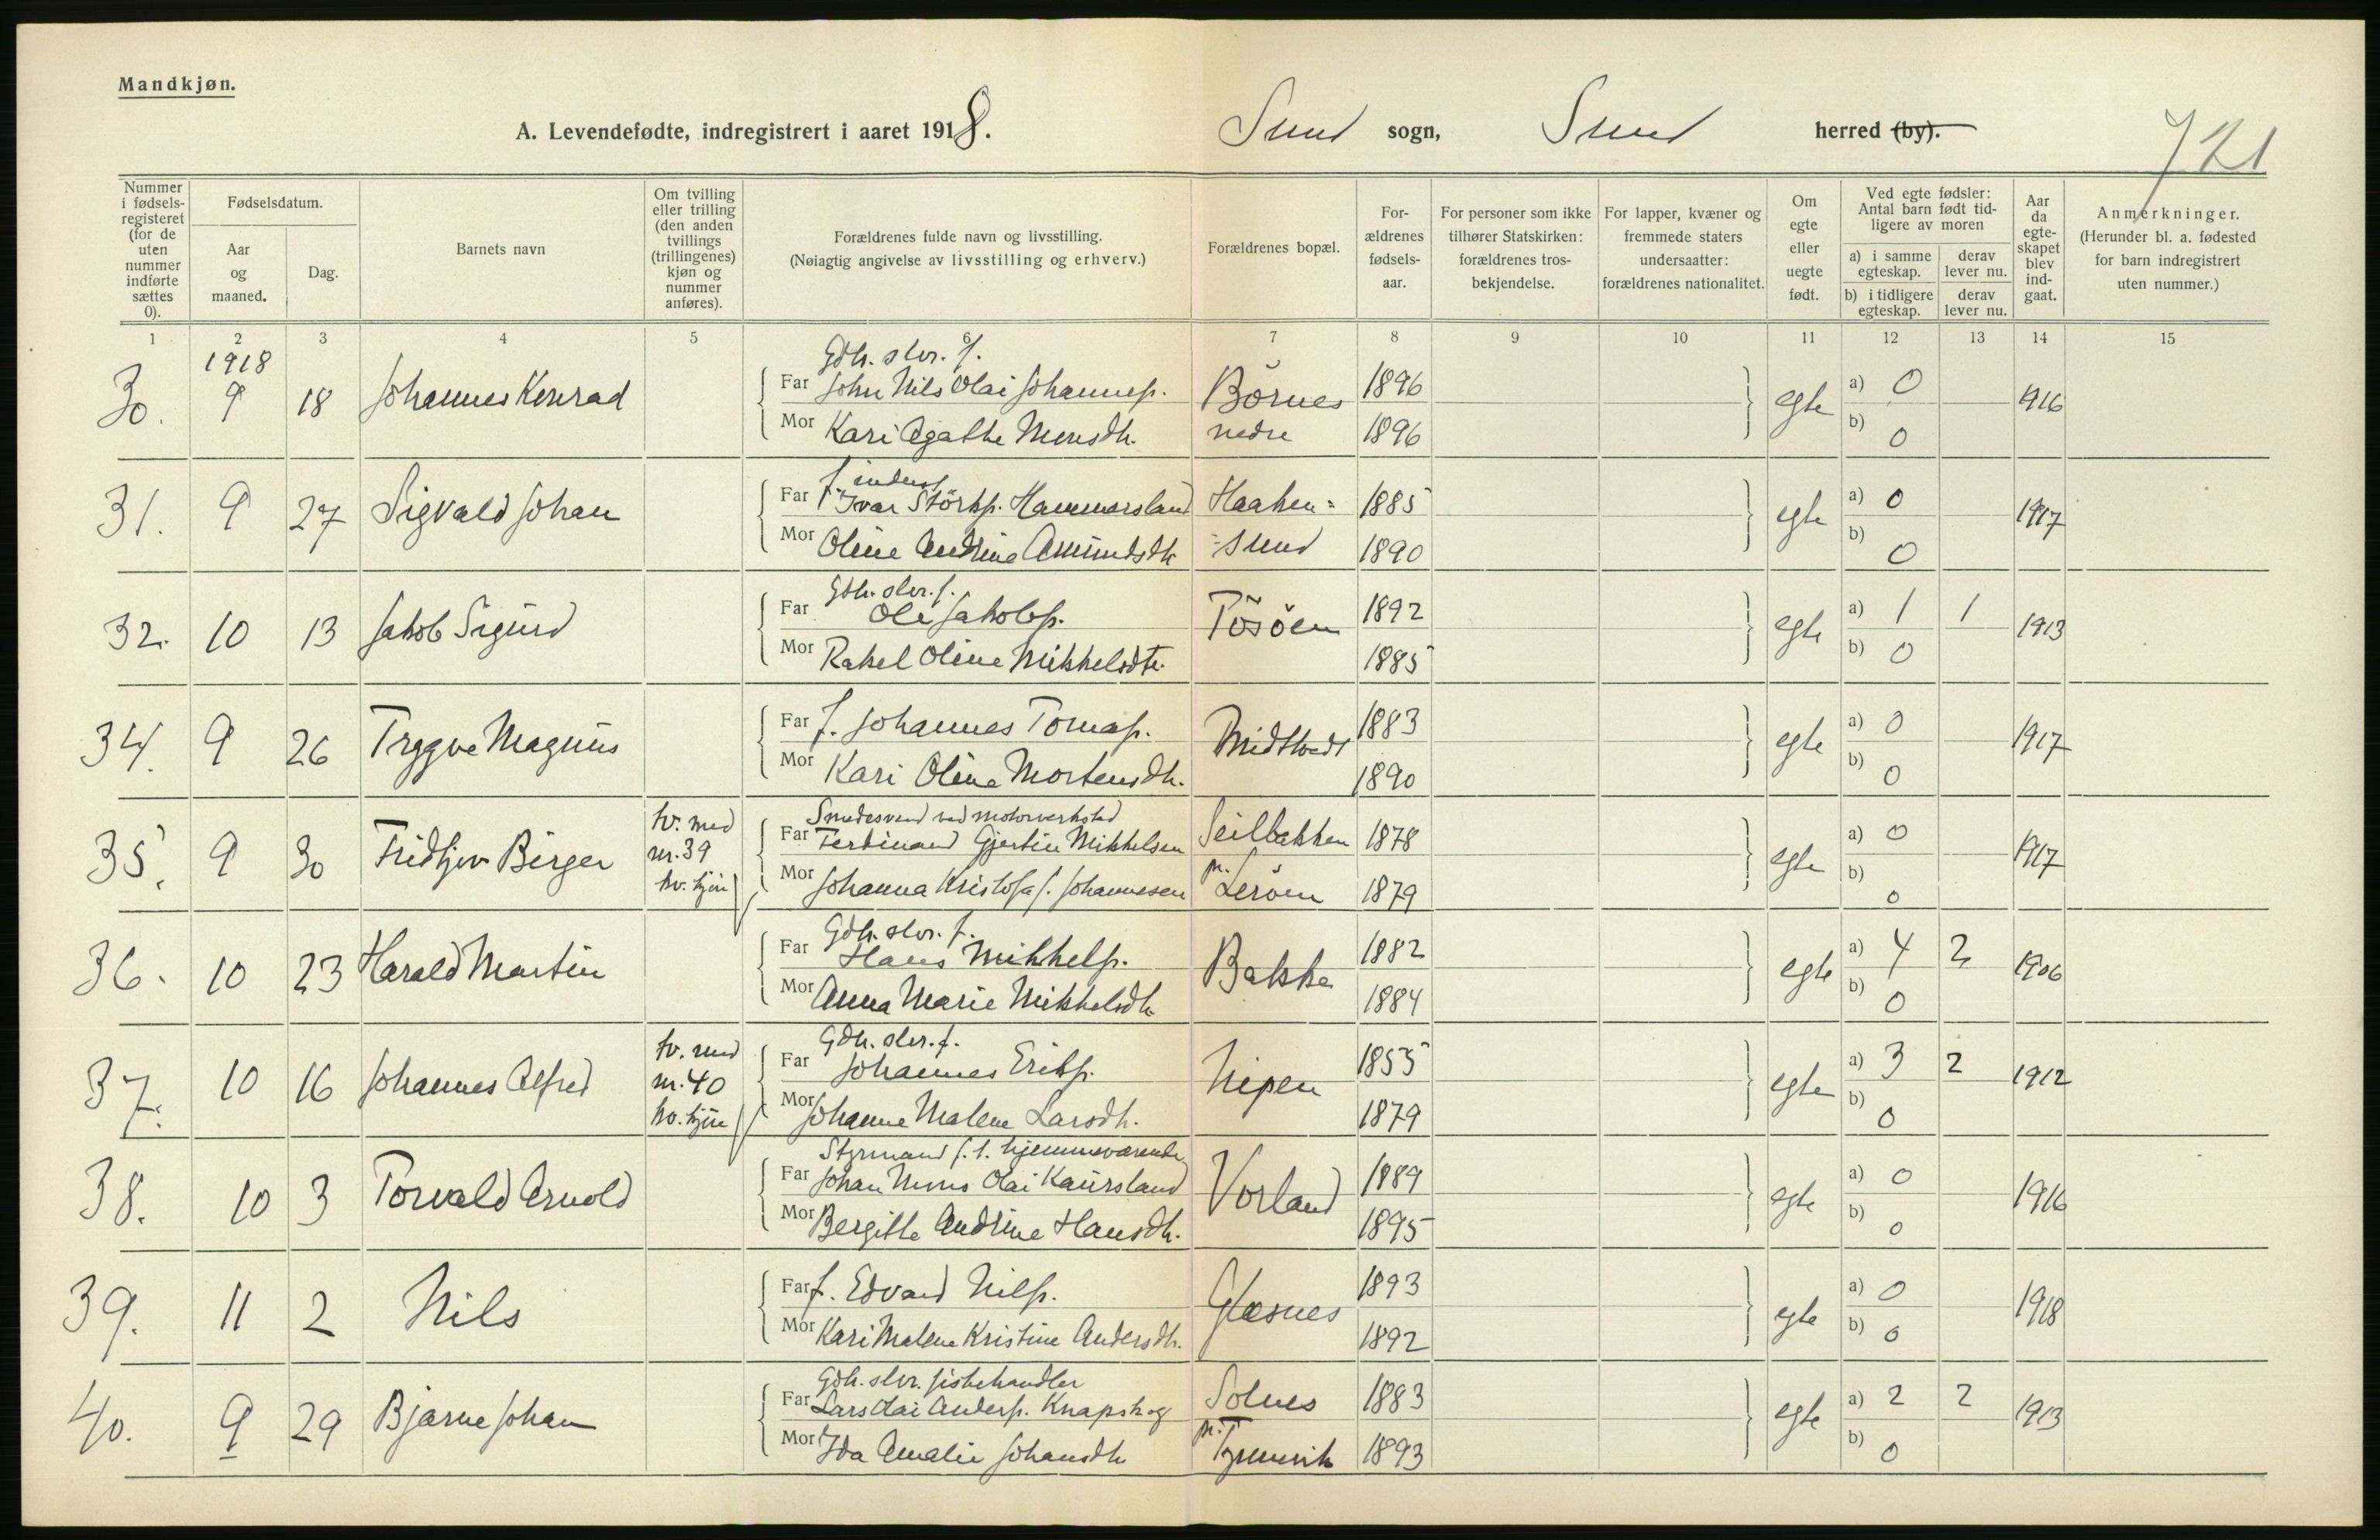 Mandkjøn.
A. Levendefødte, indregistrert i aaret 1918. Sund sogn, Sund herred (by).
721
Nummer i fødsels-registeret (for de uten nummer indførte sættes 0).
Fødselsdatum.
Aar og maaned.
Dag.
Barnets navn
Om tvilling eller trilling (den anden tvillings (trillingenes) kjøn og nummer anføres).
Forældrenes fulde navn og livsstilling.
(Nøiagtig angivelse av livsstilling og erhverv.)
Forældrenes bopæl.
For-ældrenes fødsels-aar.
For personer som ikke tilhører Statskirken: forældrenes tros-bekjendelse.
For lapper, kvæner og fremmede staters undersaatter: forældrenes nationalitet.
Om egte eller uegte født.
Ved egte fødsler: Antal barn født tid-ligere av moren
a) i samme egteskap.
derav lever nu.
b) i tidligere egteskap.
derav lever nu.
Aar da egte-skapet blev ind-gaat.
Anmerkninger.
(Herunder bl. a. fødested for barn indregistrert uten nummer.)
1 2 3 4 5 6 7 8 9 10 11 12 13 14 15
1918
Gdh. slvr. f.
30. 9 18 Johannes Konrad Far John Nils Olai Johanness. Börnes 1896 egte a) 0 1916
Mor Kari Agathe Monsdtr. nedre 1896 b) 0
31. 9 27 Sigvald Johan Far Ivar Störks. Hammersland Haaken= 1885 egte a) 0 1917
Mor Oline Andrine Amundsdtr =sund 1890 b) 0
Gdh. slvr. f.
32. 10 13 Jakob Sigurd Far Ole Jakobs. Tösöen 1892 egte a) 1 1 1913
Mor Rakel Oline Mikkelsdtr. 1885 b) 0
34. 9 26 Trygve Magnus Far f. Johannes Tomas. Midttvedt 1883 egte a) 0 1917
Mor Kari Oline Mortensdtr. 1890 b) 0
Smedesvend ved motorverksted
35. 9 30 Fridtjov Birger tv. med nr. 39 kv. kjön Far Ferdinand Gjertin Mikkelsen Seilbakken 1878 egte a) 0 1917
Mor Johanna Kristofa f. Johannesen pr. Leröen 1879 b) 0
Gdh. slvr. f.
36. 10 23 Harald Martin Far Hans Mikkels. Bakke 1882 egte a) 4 2 1906
Mor Anna Marie Mikkelsdtr 1884 b) 0
Gdh. slvr. f.
37. 10 16 Johannes Alfred tv. med nr. 40 kv. kjön Far Johannes Eriks. Nipen 1855 egte a) 3 2 1912
Mor Johanne Malene Larsdtr. 1879 b) 0
Styrmand f. t. hjemmeværende
38. 10 3 Torvald Arnold Far Johan Mons Olai Kausland Vorland 1889 egte a) 0 1916
Mor Bergitte Andrine Hansdtr. 1895 b) 0
39. 11 2 Nils Far f. Edvard Nils. Glesnes 1893 egte a) 0 1918
Mor Kari Malene Kristine Andersdtr. 1892 b) 0
Gdh. slvr. fiskehandler
40. 9 29 Bjarne Johan Far Lars Olai Anders. Knapskog Solnes 1883 egte a) 2 2 1913
Mor Ida Amalie Johansdtr pr. 1893 b) 0